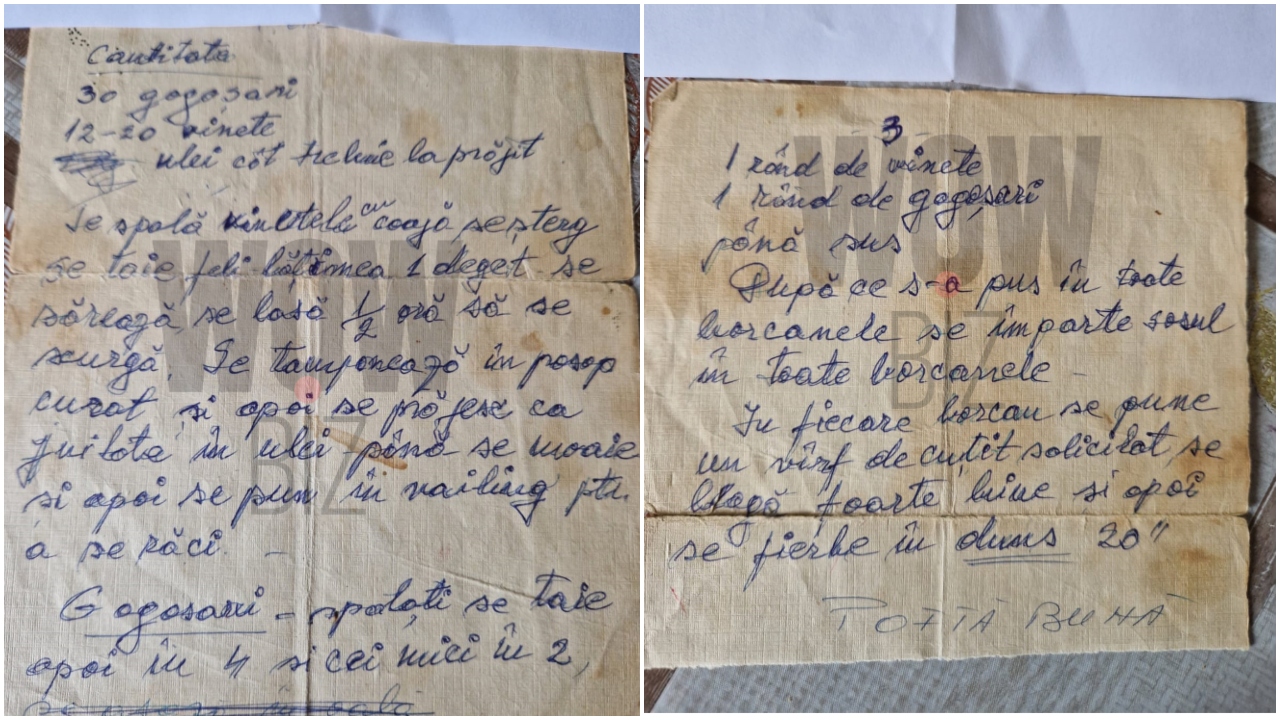 Cantitate
30 gogoșari
12-20 vinete
ulei cât trebuie la prăjit
Se spală vinetele cu coajă se șterg
se taie felii lățimea 1 deget se
sărează, se lasă 1/2 oră să se
scurgă. Se tamponează în posop
curat și apoi se prăjesc ca
friptă în ulei până se moaie
și apoi se pun în vailing ptr.
a se răci. -
Gogoșari - spălați se taie
apoi în 4 și cei mici în 2,
3
1 rând de vinete
1 rând de gogoșari
până sus
După ce s-a pus în toate
borcanele se împarte sosul
în toate borcanele -
In fiecare borcan se pune
un vârf de cuțit solicilat, se
leagă foarte bine și apoi
se fierbe în duns 20"
POFTĂ BUNĂ
WOW
BIZ
WOW
BIZ